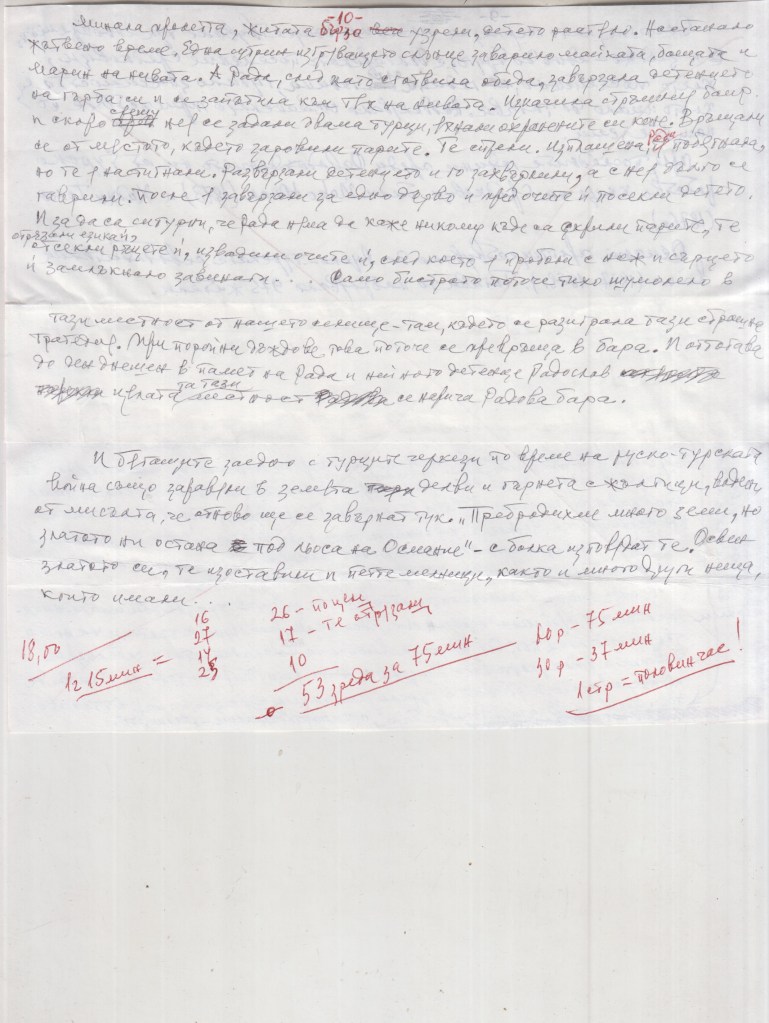 -10-
Минала пролетта, житата бързо узрели, детето растяло. Настанало
жътвено време. Една сутрин изгряващото слънце заварило майката, бащата и
Марин на нивата. А Рада, след като сготвила обяда, завързала детенцето
на гърба си и се запътила към тях на нивата. Изкачила стръмния баир
и скоро срещу нея се задали двама турци, яхнали охранените си коне. Връщали
се от мястото, където заровили парите. Те спрели. Изплашена, Рада побягнала,
но те я настигнали. Развързали детенцето и го захвърлили, а с нея дълго се
гаврили. После я завързали за едно дърво и пред очите ѝ посекли детето.
И за да са сигурни, че Рада няма да каже никому къде са скрили парите, те
отрязали езика ѝ,
отсекли ръцете ѝ, извадили очите ѝ, след което я проболи с нож и сърцето
ѝ замлъкнало завинаги... Само бистрото поточе тихо шумоляло в
тази местност от нашето селище – там, където се разиграла тази страшна
трагедия. При поройни дъждове това поточе се превръща в бара. И оттогава
до ден днешен в памет на Рада и нейното детенце Радослав
и цялата тази местност се нарича Радова бара.
И бягащите заедно с турците черкези по време на руско-турската
война също заравяли в земята делви и гърнета с жълтици, водени
от мисълта, че отново ще се завърнат тук. „Пребродихме много земи, но
златото ни остана под носа на Османие" – с болка изтовдрат те. Освен
златото си, те изоставили и петте мелници, както и много други неща,
които имали...
18,00
1г 15 мин =
16
27
14
23
26 - по цем
17 - те отрязани
10
53 зреда за 75 мин
60 р - 75 мин
30 р - 37 мин
1 стр = половин час!